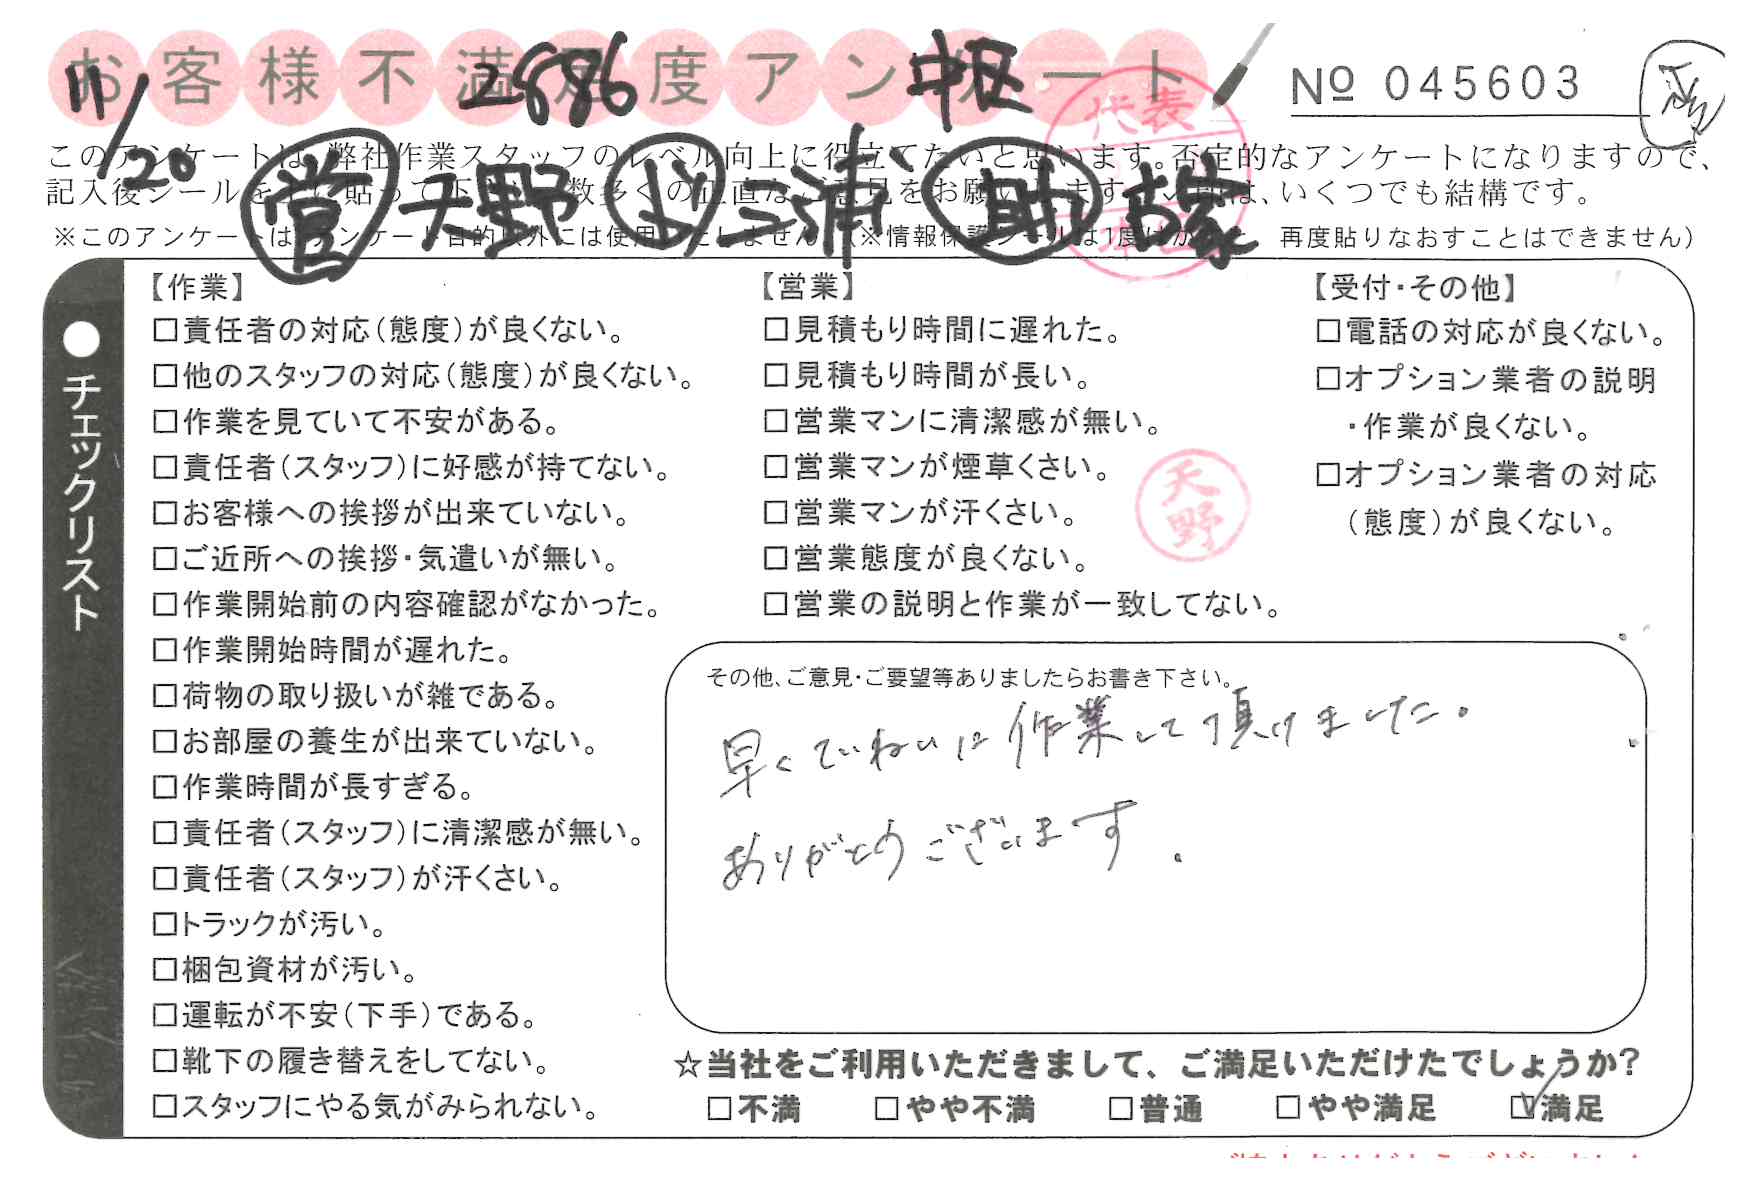 お客様不満足度アンケート
11/20 2886 中区
№ 045603
このアンケートは、弊社作業スタッフのレベル向上に役立てたいと思います。否定的なアンケートになりますので、
記入後シールを上に貼って下さい。数多くの正直なご意見をお願いします。✓印は、いくつでも結構です。
営 天野 三浦 助
代表
※このアンケートは、アンケート目的以外には使用いたしません。(※情報保護シールは1度はがすと、再度貼りなおすことはできません)
●チェックリスト
【作業】
□責任者の対応(態度)が良くない。
□他のスタッフの対応(態度)が良くない。
□作業を見ていて不安がある。
□責任者(スタッフ)に好感が持てない。
□お客様への挨拶が出来ていない。
□ご近所への挨拶・気遣いが無い。
□作業開始前の内容確認がなかった。
□作業開始時間が遅れた。
□荷物の取り扱いが雑である。
□お部屋の養生が出来ていない。
□作業時間が長すぎる。
□責任者(スタッフ)に清潔感が無い。
□責任者(スタッフ)が汗くさい。
□トラックが汚い。
□梱包資材が汚い。
□運転が不安(下手)である。
□靴下の履き替えをしてない。
□スタッフにやる気がみられない。
【営業】
□見積もり時間に遅れた。
□見積もり時間が長い。
□営業マンに清潔感が無い。
□営業マンが煙草くさい。
□営業マンが汗くさい。
□営業態度が良くない。
□営業の説明と作業が一致してない。
天野
【受付・その他】
□電話の対応が良くない。
□オプション業者の説明
・作業が良くない。
□オプション業者の対応
(態度)が良くない。
その他、ご意見・ご要望等ありましたらお書き下さい。
早くていねいに作業して頂けました。
ありがとうございます。
☆当社をご利用いただきまして、ご満足いただけたでしょうか?
□不満 □やや不満 □普通 □やや満足 ☑満足